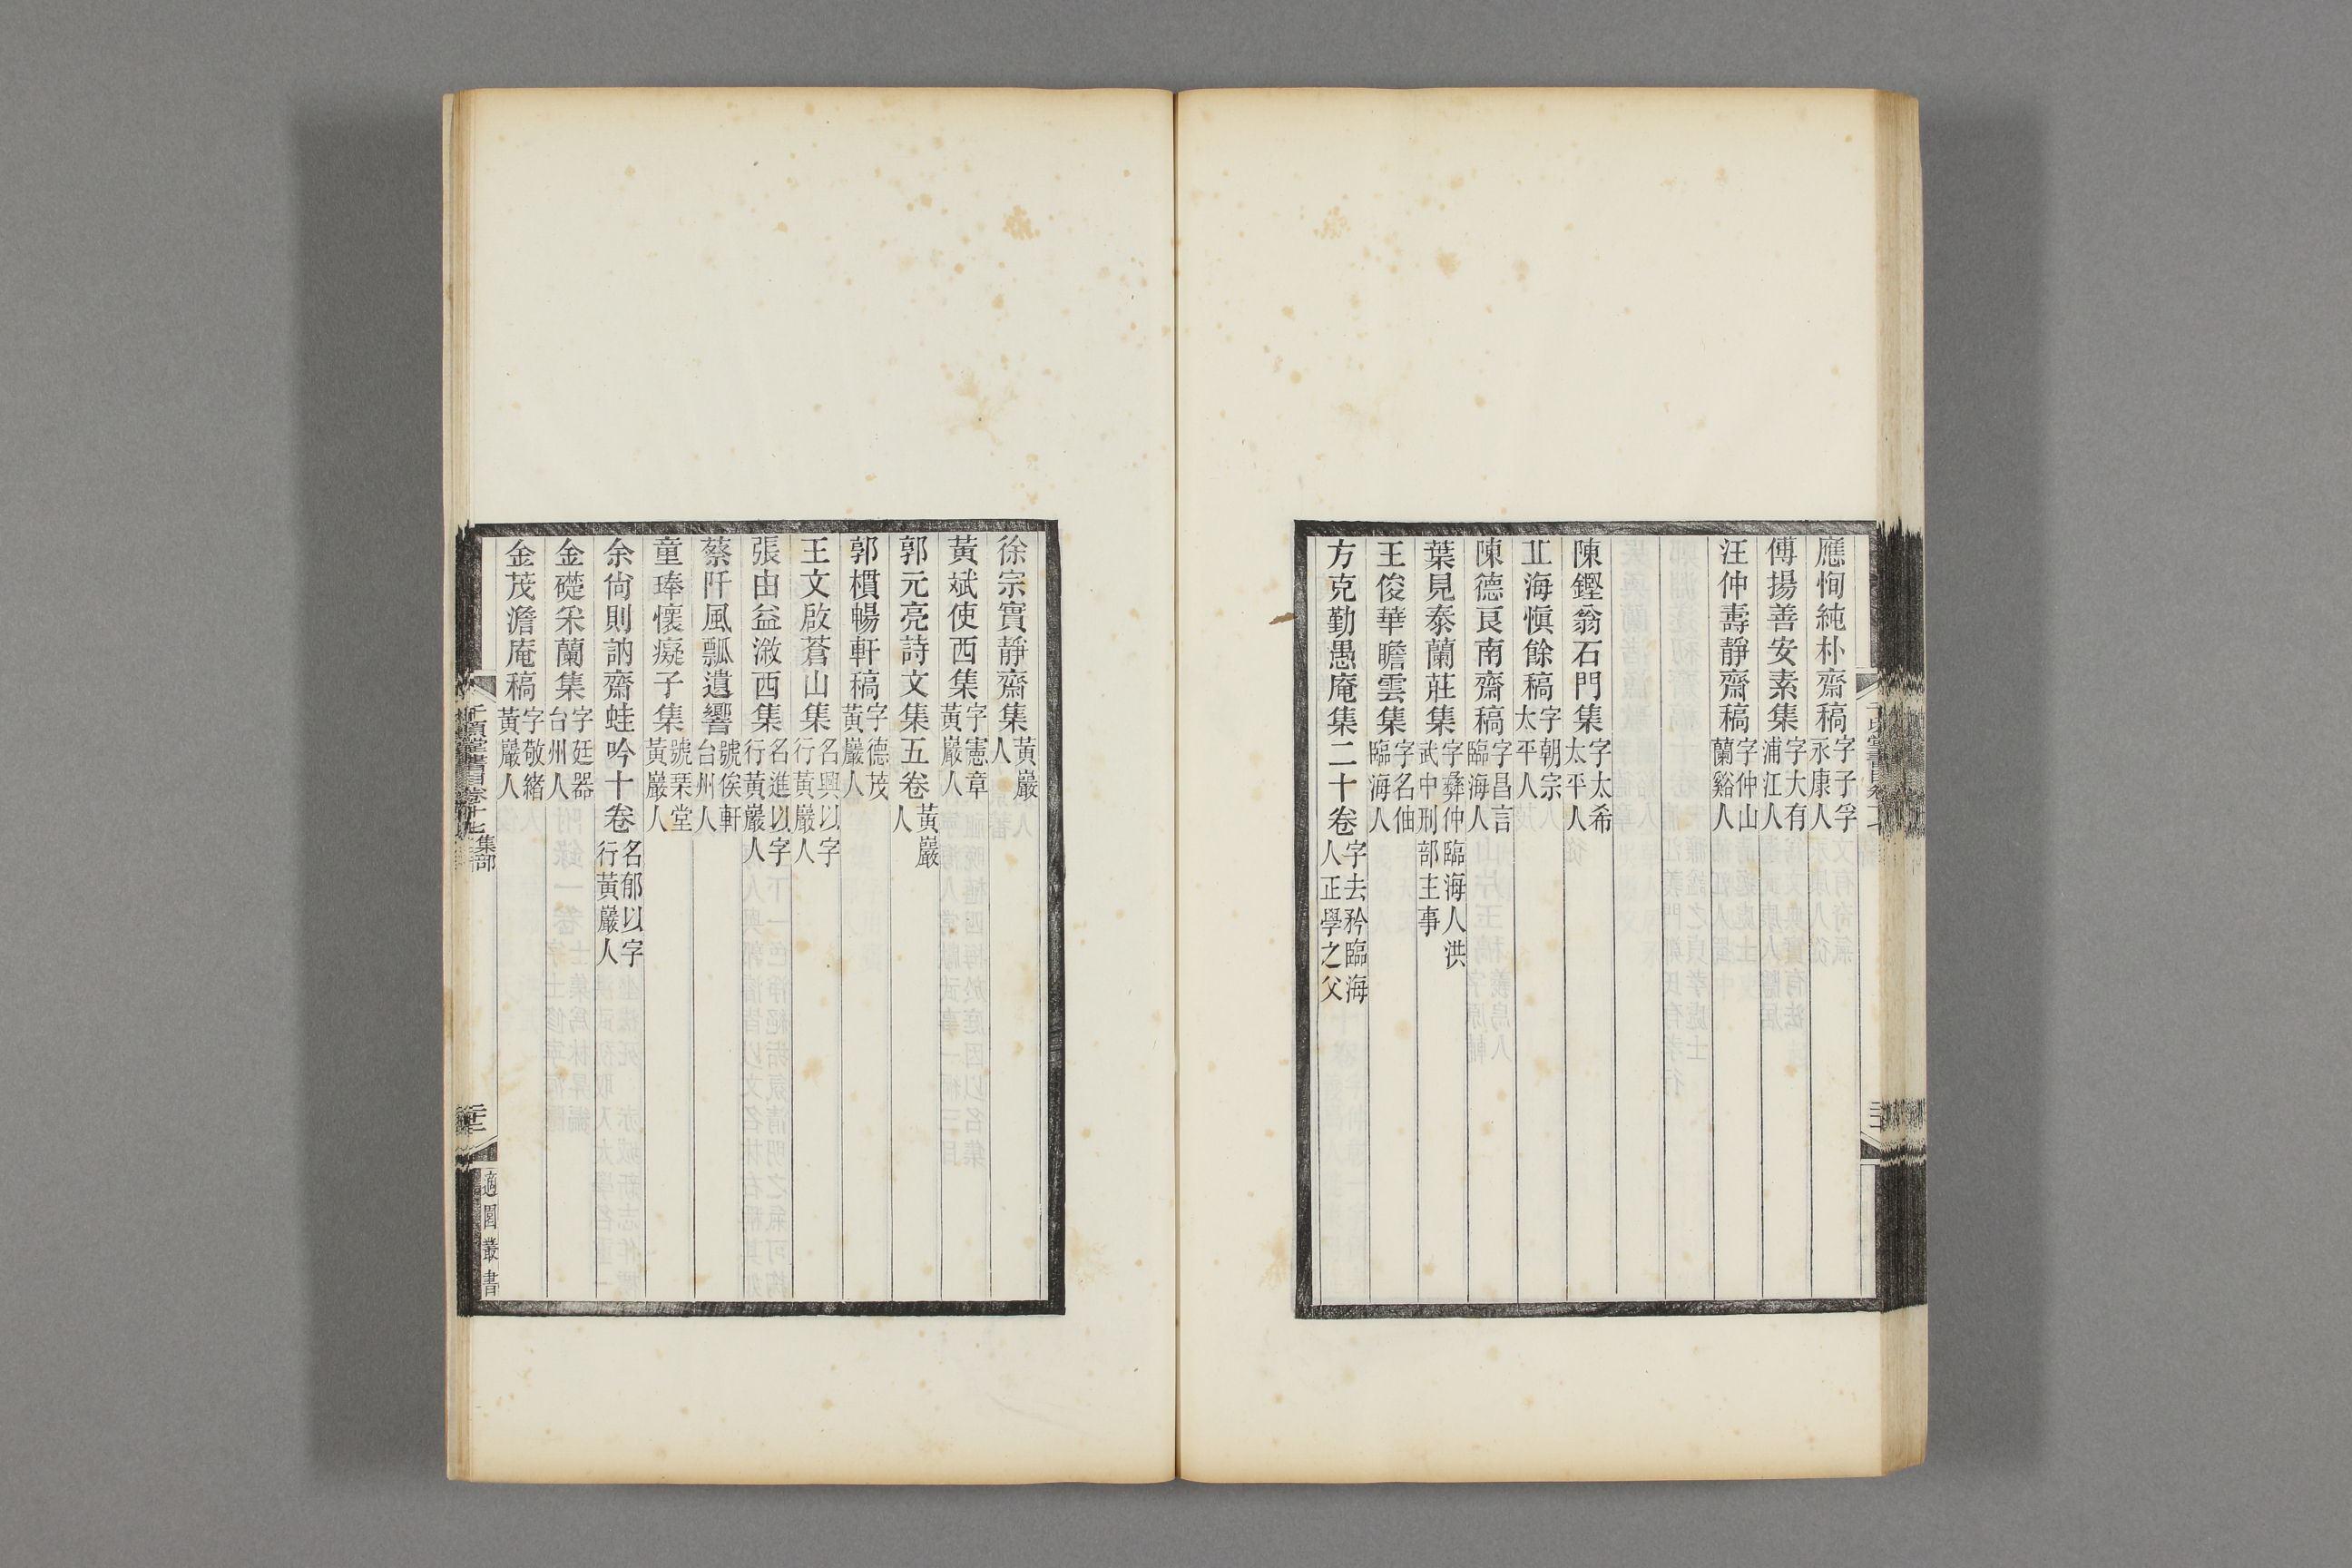 應恂純朴齋稿字子孚永康人
傅揚善安素集字大有浦江人
汪仲壽靜齋稿字仲山蘭谿人
陳鏗翁石門集字太希太平人
丠海愼餘稿字朝宗太平人
陳德良南齋稿字昌言臨海人
葉見泰蘭莊集字彝仲臨海人洪武中刑部主事
王俊華瞻雲集字名伷臨海人
方克勤愚庵集二十卷字去矜臨海人正學之父
徐宗實靜齋集黃巖人
黃斌使西集字憲章黃巖人
郭元亮詩文集五卷黃巖人
郭樌暢軒稿字德茂黃巖人
王文啟蒼山集名興以字行黃巖人
張由益漵西集名進以字行黃巖人
蔡阡風瓢遺響號俟軒台州人
童琫懷癡子集號琹堂黃巖人
余尙則訥齋蛙吟十卷名郁以字行黃巖人
金礎采蘭集字廷器台州人
金茂澹庵稿字敬緒黃巖人
千頃堂書目卷十七集部
適園叢書